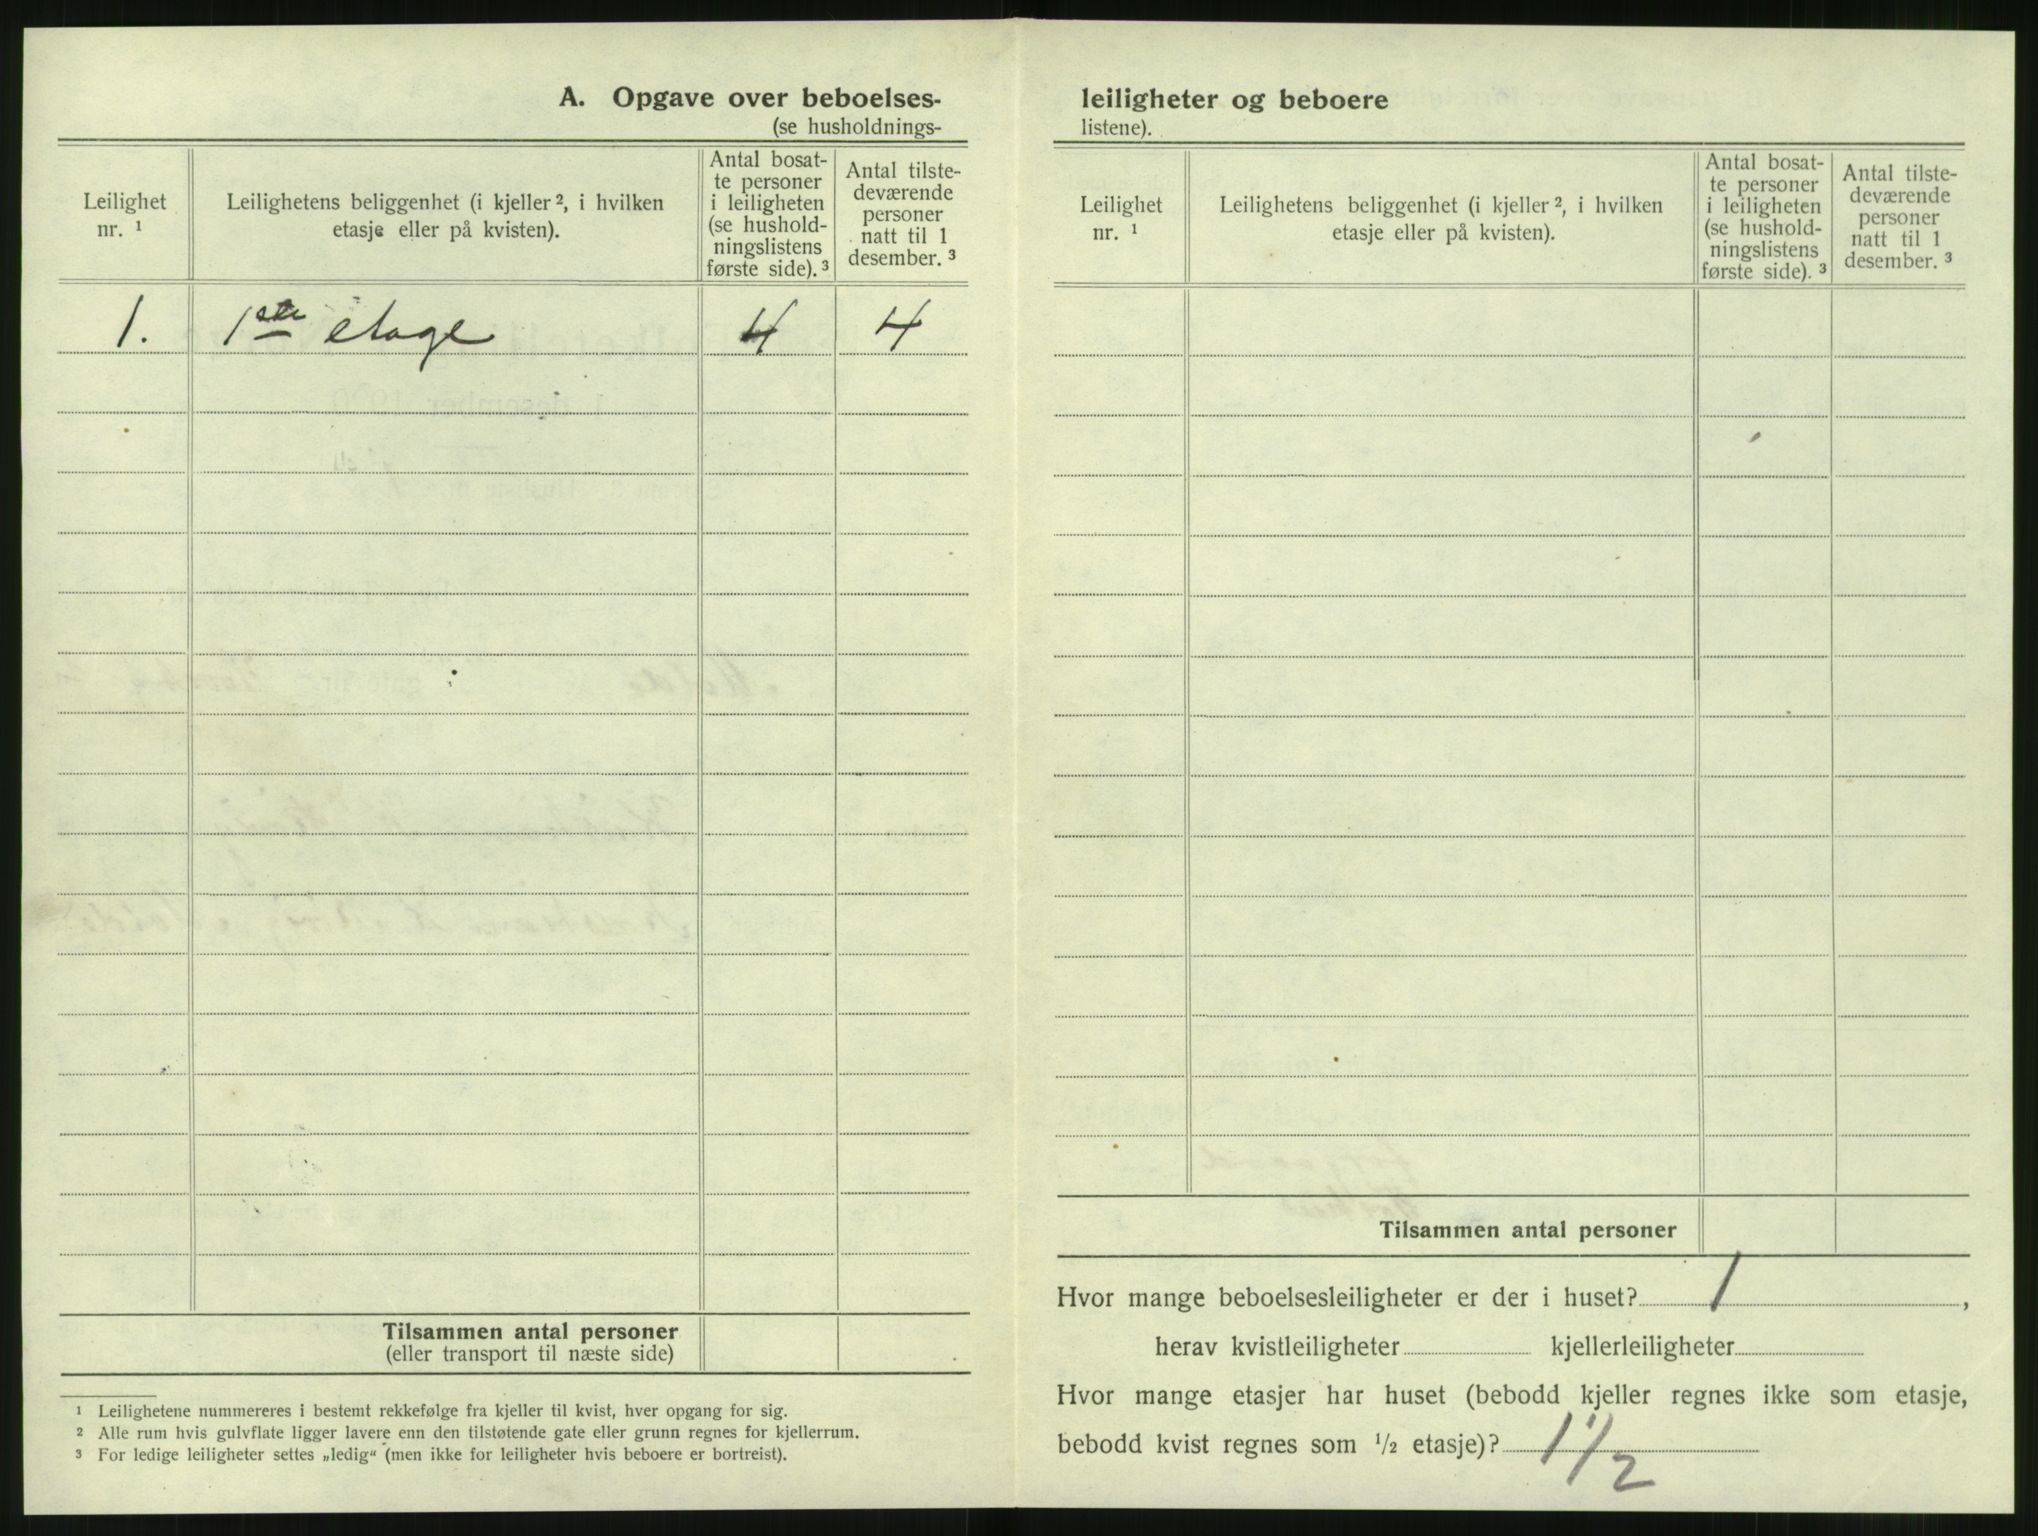 A. Opgave over beboelses-
(se husholdnings-
Leilighet
nr. 1
Leilighetens beliggenhet (i kjeller 2, i hvilken
etasje eller på kvisten).
Antal bosat-
te personer
i leiligheten
(se hushold-
ningslistens
første side). 3
Antal tilste-
deværende
personer
natt til 1
desember. 3
1. 1ste etage 4 4
Tilsammen antal personer
(eller transport til næste side)
1 Leilighetene nummereres i bestemt rekkefølge fra kjeller til kvist, hver opgang for sig.
2 Alle rum hvis gulvflate ligger lavere enn den tilstøtende gate eller grunn regnes for kjellerrum.
3 For ledige leiligheter settes „ledig“ (men ikke for leiligheter hvis beboere er bortreist).
leiligheter og beboere
listene).
Leilighet
nr. 1
Leilighetens beliggenhet (i kjeller 2, i hvilken
etasje eller på kvisten).
Antal bosat-
te personer
i leiligheten
(se hushold-
ningslistens
første side). 3
Antal tilste-
deværende
personer
natt til 1
desember. 3
Tilsammen antal personer
Hvor mange beboelsesleiligheter er der i huset? 1,
herav kvistleiligheter kjellerleiligheter
Hvor mange etasjer har huset (bebodd kjeller regnes ikke som etasje,
bebodd kvist regnes som 1/2 etasje)? 1 1/2